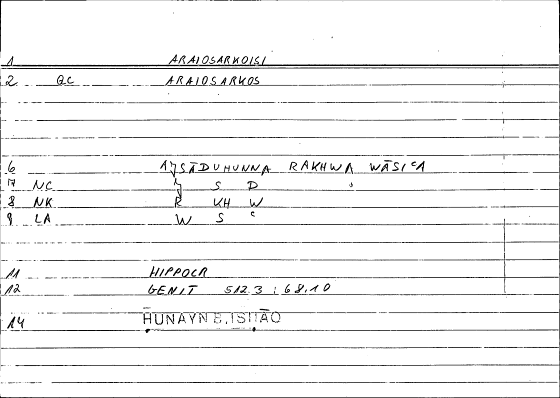 1 ARAIOSARKOISI
2 QC ARAIOSARKOS
6 AǦSĀDUHUNNA RAKHWA WĀSIᶜA
7 NC Ǧ S D
8 NK R KH W
9 LA W S ᶜ
11 HIPPOCR
12 GENIT 512.3 : 68.10
14 HUNAYN B. ISHĀQ